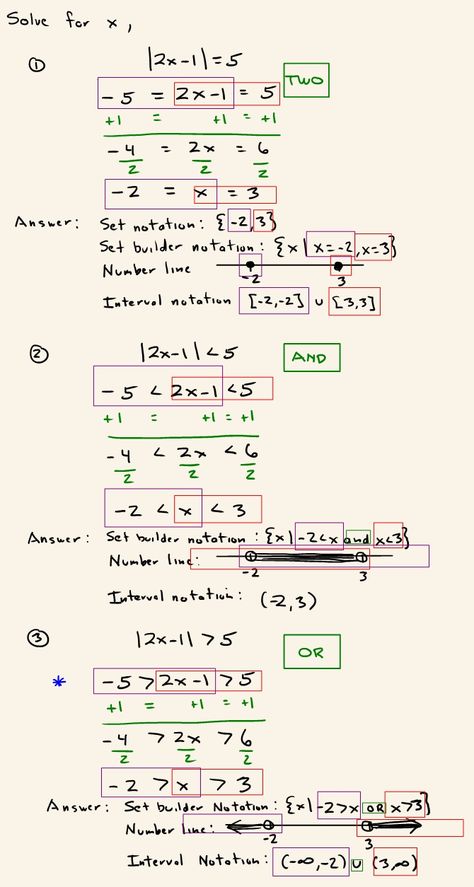 Solve for x,
① |2x-1| = 5
-5 = 2x-1 = 5 TWO
+1 = +1 = +1
-4/2 = 2x/2 = 6/2
-2 = x = 3
Answer: Set notation: {-2, 3}
Set builder notation: {x| x=-2, x=3}
Number line
-2 3
Interval notation [-2,-2] ∪ [3,3]
② |2x-1| < 5 AND
-5 < 2x-1 < 5
+1 = +1 = +1
-4/2 < 2x/2 < 6/2
-2 < x < 3
Answer: Set builder notation: {x| -2<x and x<3}
Number line:
-2 3
Interval notation: (-2,3)
③ |2x-1| > 5 OR
* -5 > 2x-1 > 5
+1 = +1 = +1
-4/2 > 2x/2 > 6/2
-2 > x > 3
Answer: Set builder Notation: {x| -2>x OR x>3}
Number line:
-2 3
Interval Notation: (-∞,-2) ∪ (3,∞)